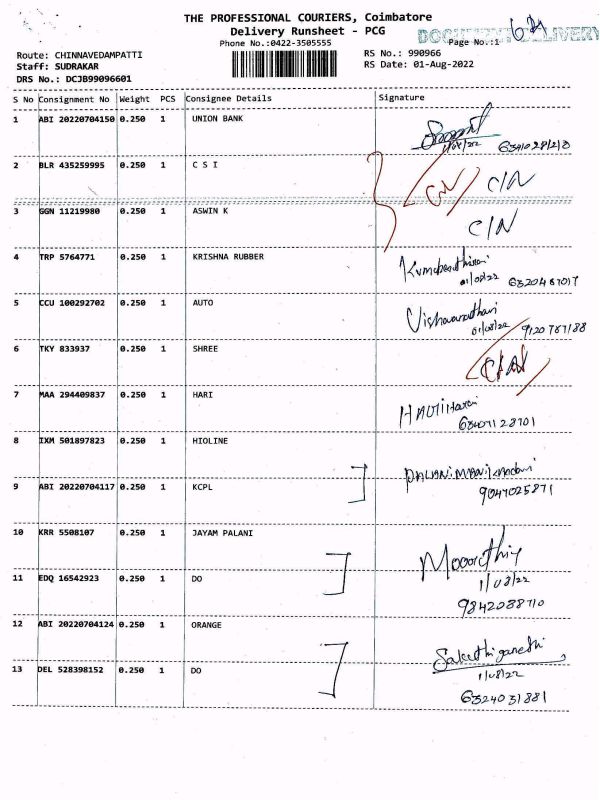 THE PROFESSIONAL COURIERS, Coimbatore
Delivery Runsheet - PCG
Phone No.:0422-3505555
Page No.:1
Route: CHINNAVEDAMPATTI
Staff: SUDRAKAR
DRS No.: DCJB99096601
RS No.: 990966
RS Date: 01-Aug-2022
S No Consignment No Weight PCS Consignee Details Signature
1 ABI 20220704150 0.250 1 UNION BANK
1/08/22
2 BLR 435259995 0.250 1 C S I C/N
3 GGN 11219980 0.250 1 ASWIN K C/N
4 TRP 5764771 0.250 1 KRISHNA RUBBER
01/08/22 6320487017
5 CCU 100292702 0.250 1 AUTO
01/08/22 9120787188
6 TKY 833937 0.250 1 SHREE
7 MAA 294409837 0.250 1 HARI
8 IXM 501897823 0.250 1 HIOLINE
9 ABI 20220704117 0.250 1 KCPL
9047025871
10 KRR 5508107 0.250 1 JAYAM PALANI
11 EDQ 16542923 0.250 1 DO
1/08/22
9842088710
12 ABI 20220704124 0.250 1 ORANGE
13 DEL 528398152 0.250 1 DO
1/08/22
6324031881